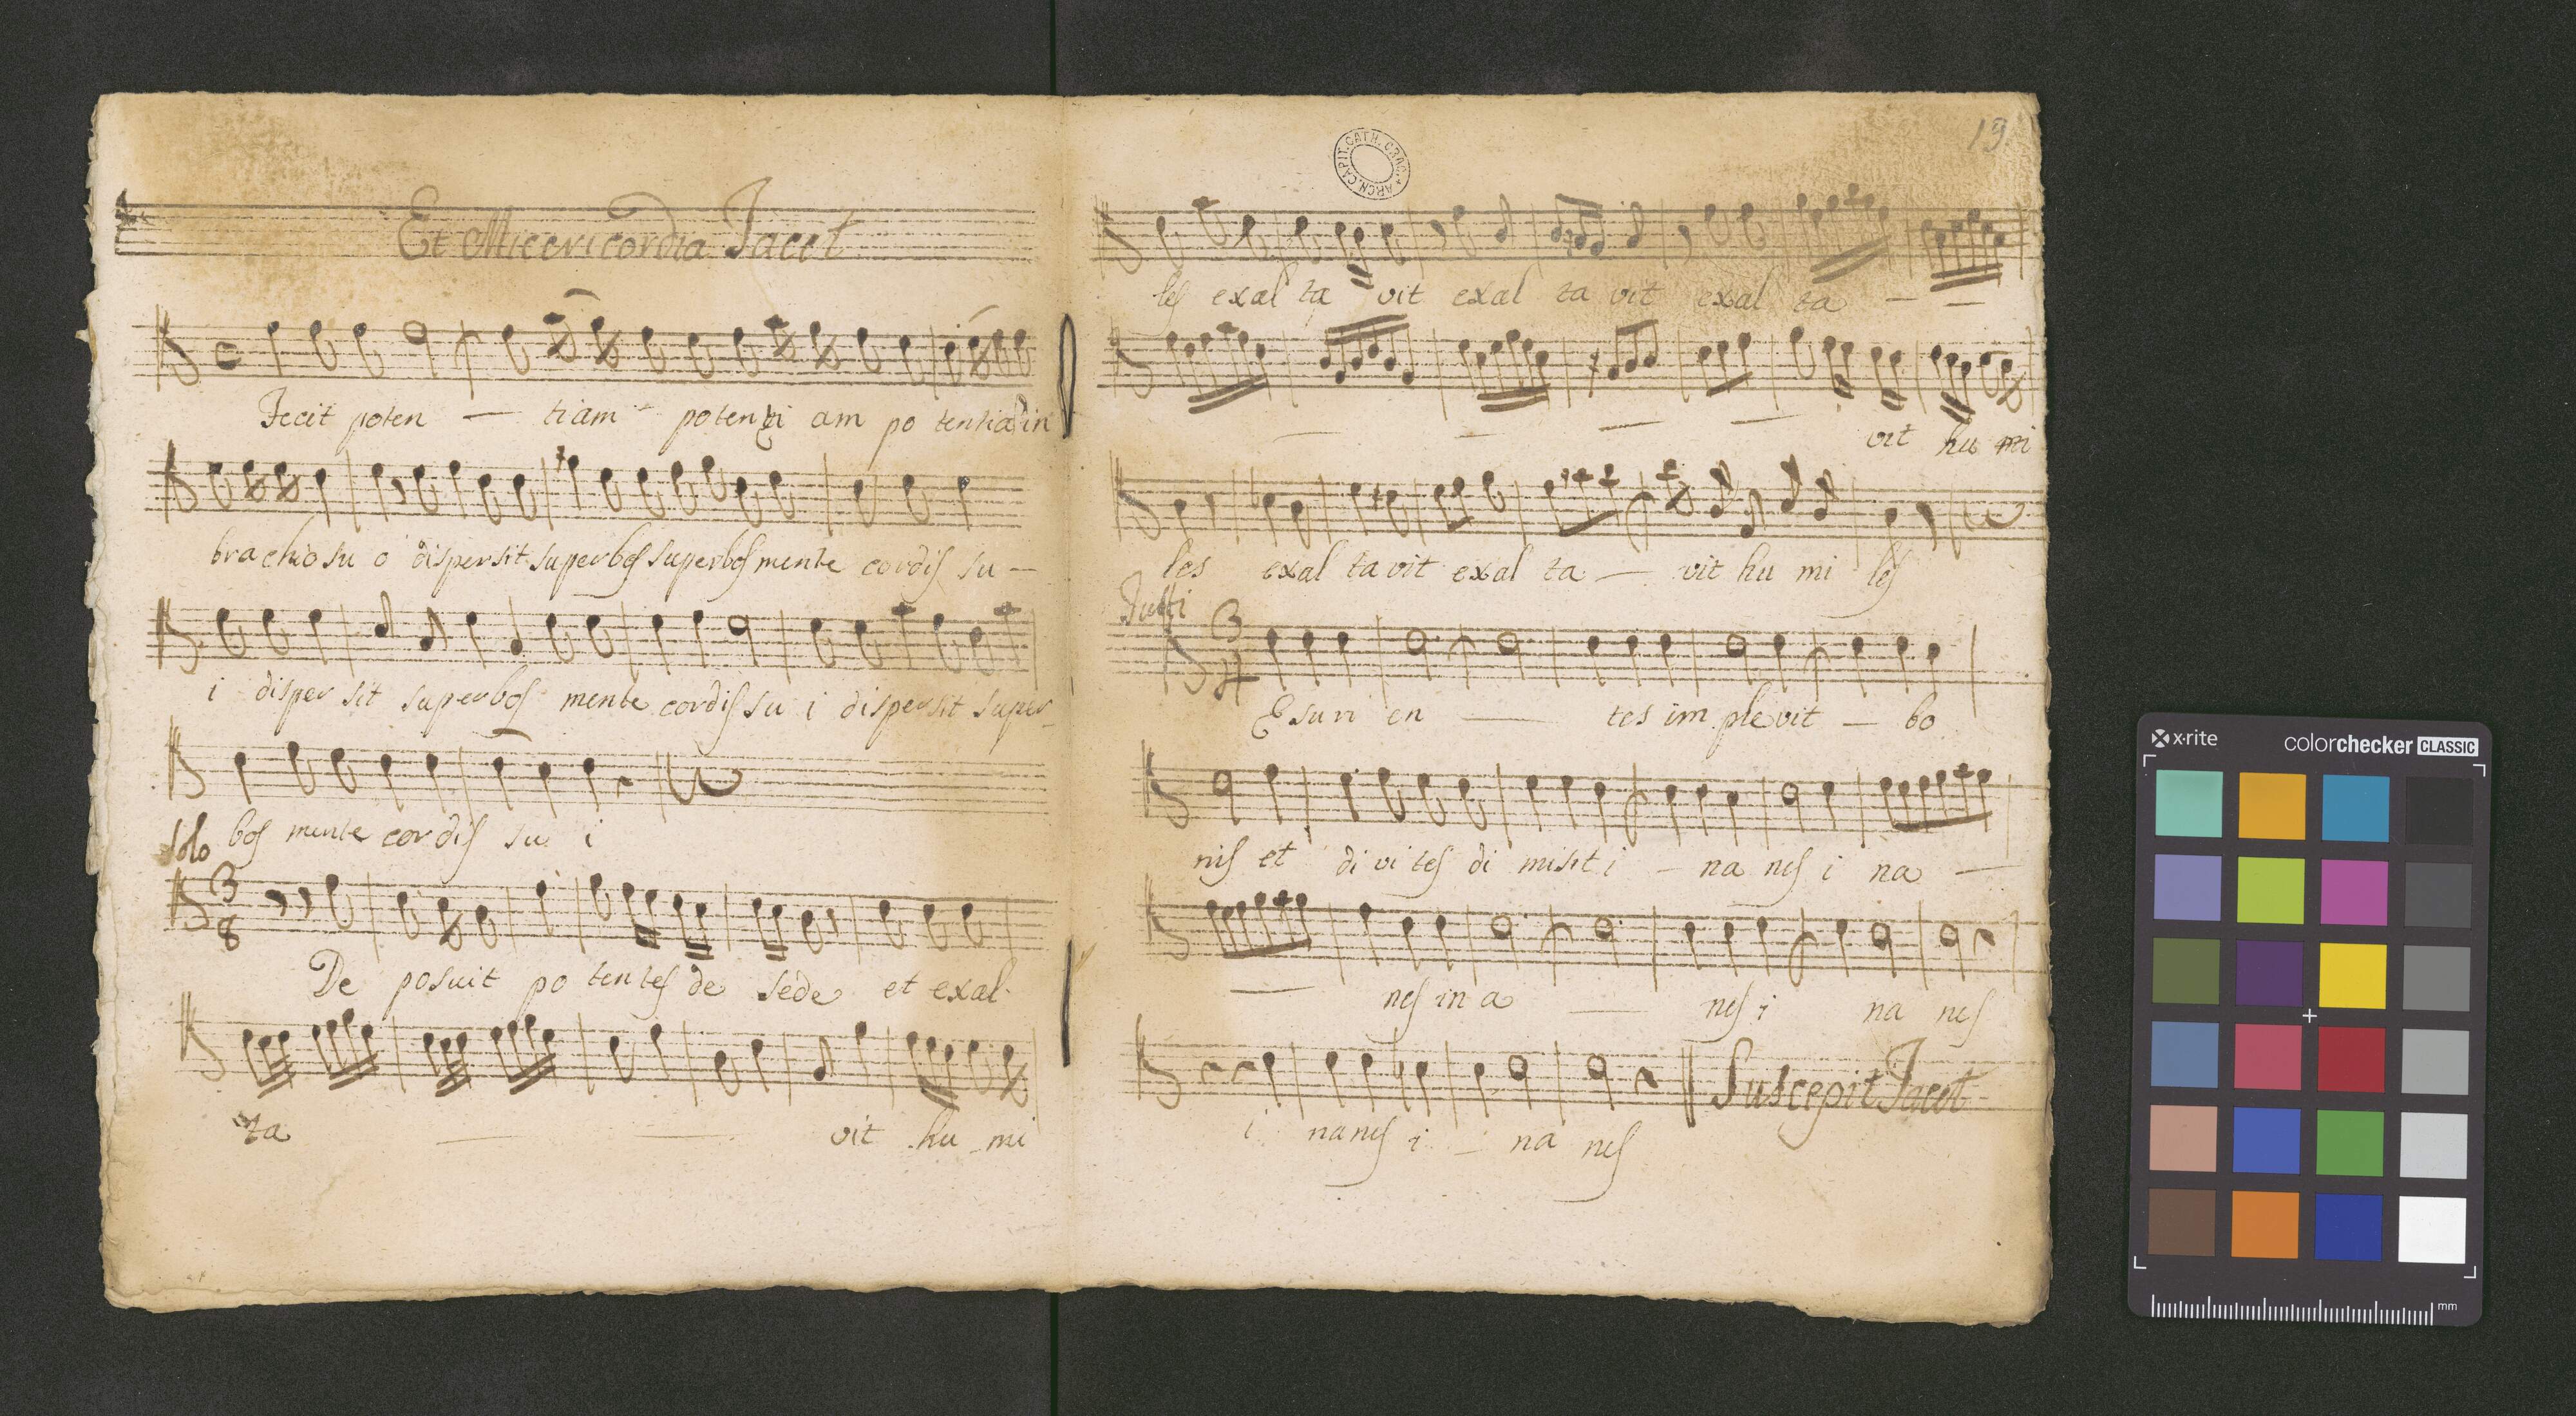 Et Misericordia Tacet
Fecit poten — tiam potenti am po tentiā in
brachio su o dispersit superbos superbos mente cordis su —
i disper sit superbos mente cordis su i dispersit super-
bos mente cordis su i
Solo
3
8
De posuit po tentes de sede et exal-
ta — — vit hu mi
19.
ARCH. CAPIT. CATH. CRAC.
les exal ta vit exal ta vit exal ta — —
— — — — vit hu mi
les exal ta vit exal ta — vit hu mi les
Tutti
3
4
Esuri en — tes im plevit — bo
nis et di vi tes di misit i — na nes i na —
— nes in a — nes i na nes
i na nes i — na nes
Suscepit Tacet
x·rite
colorchecker CLASSIC
mm